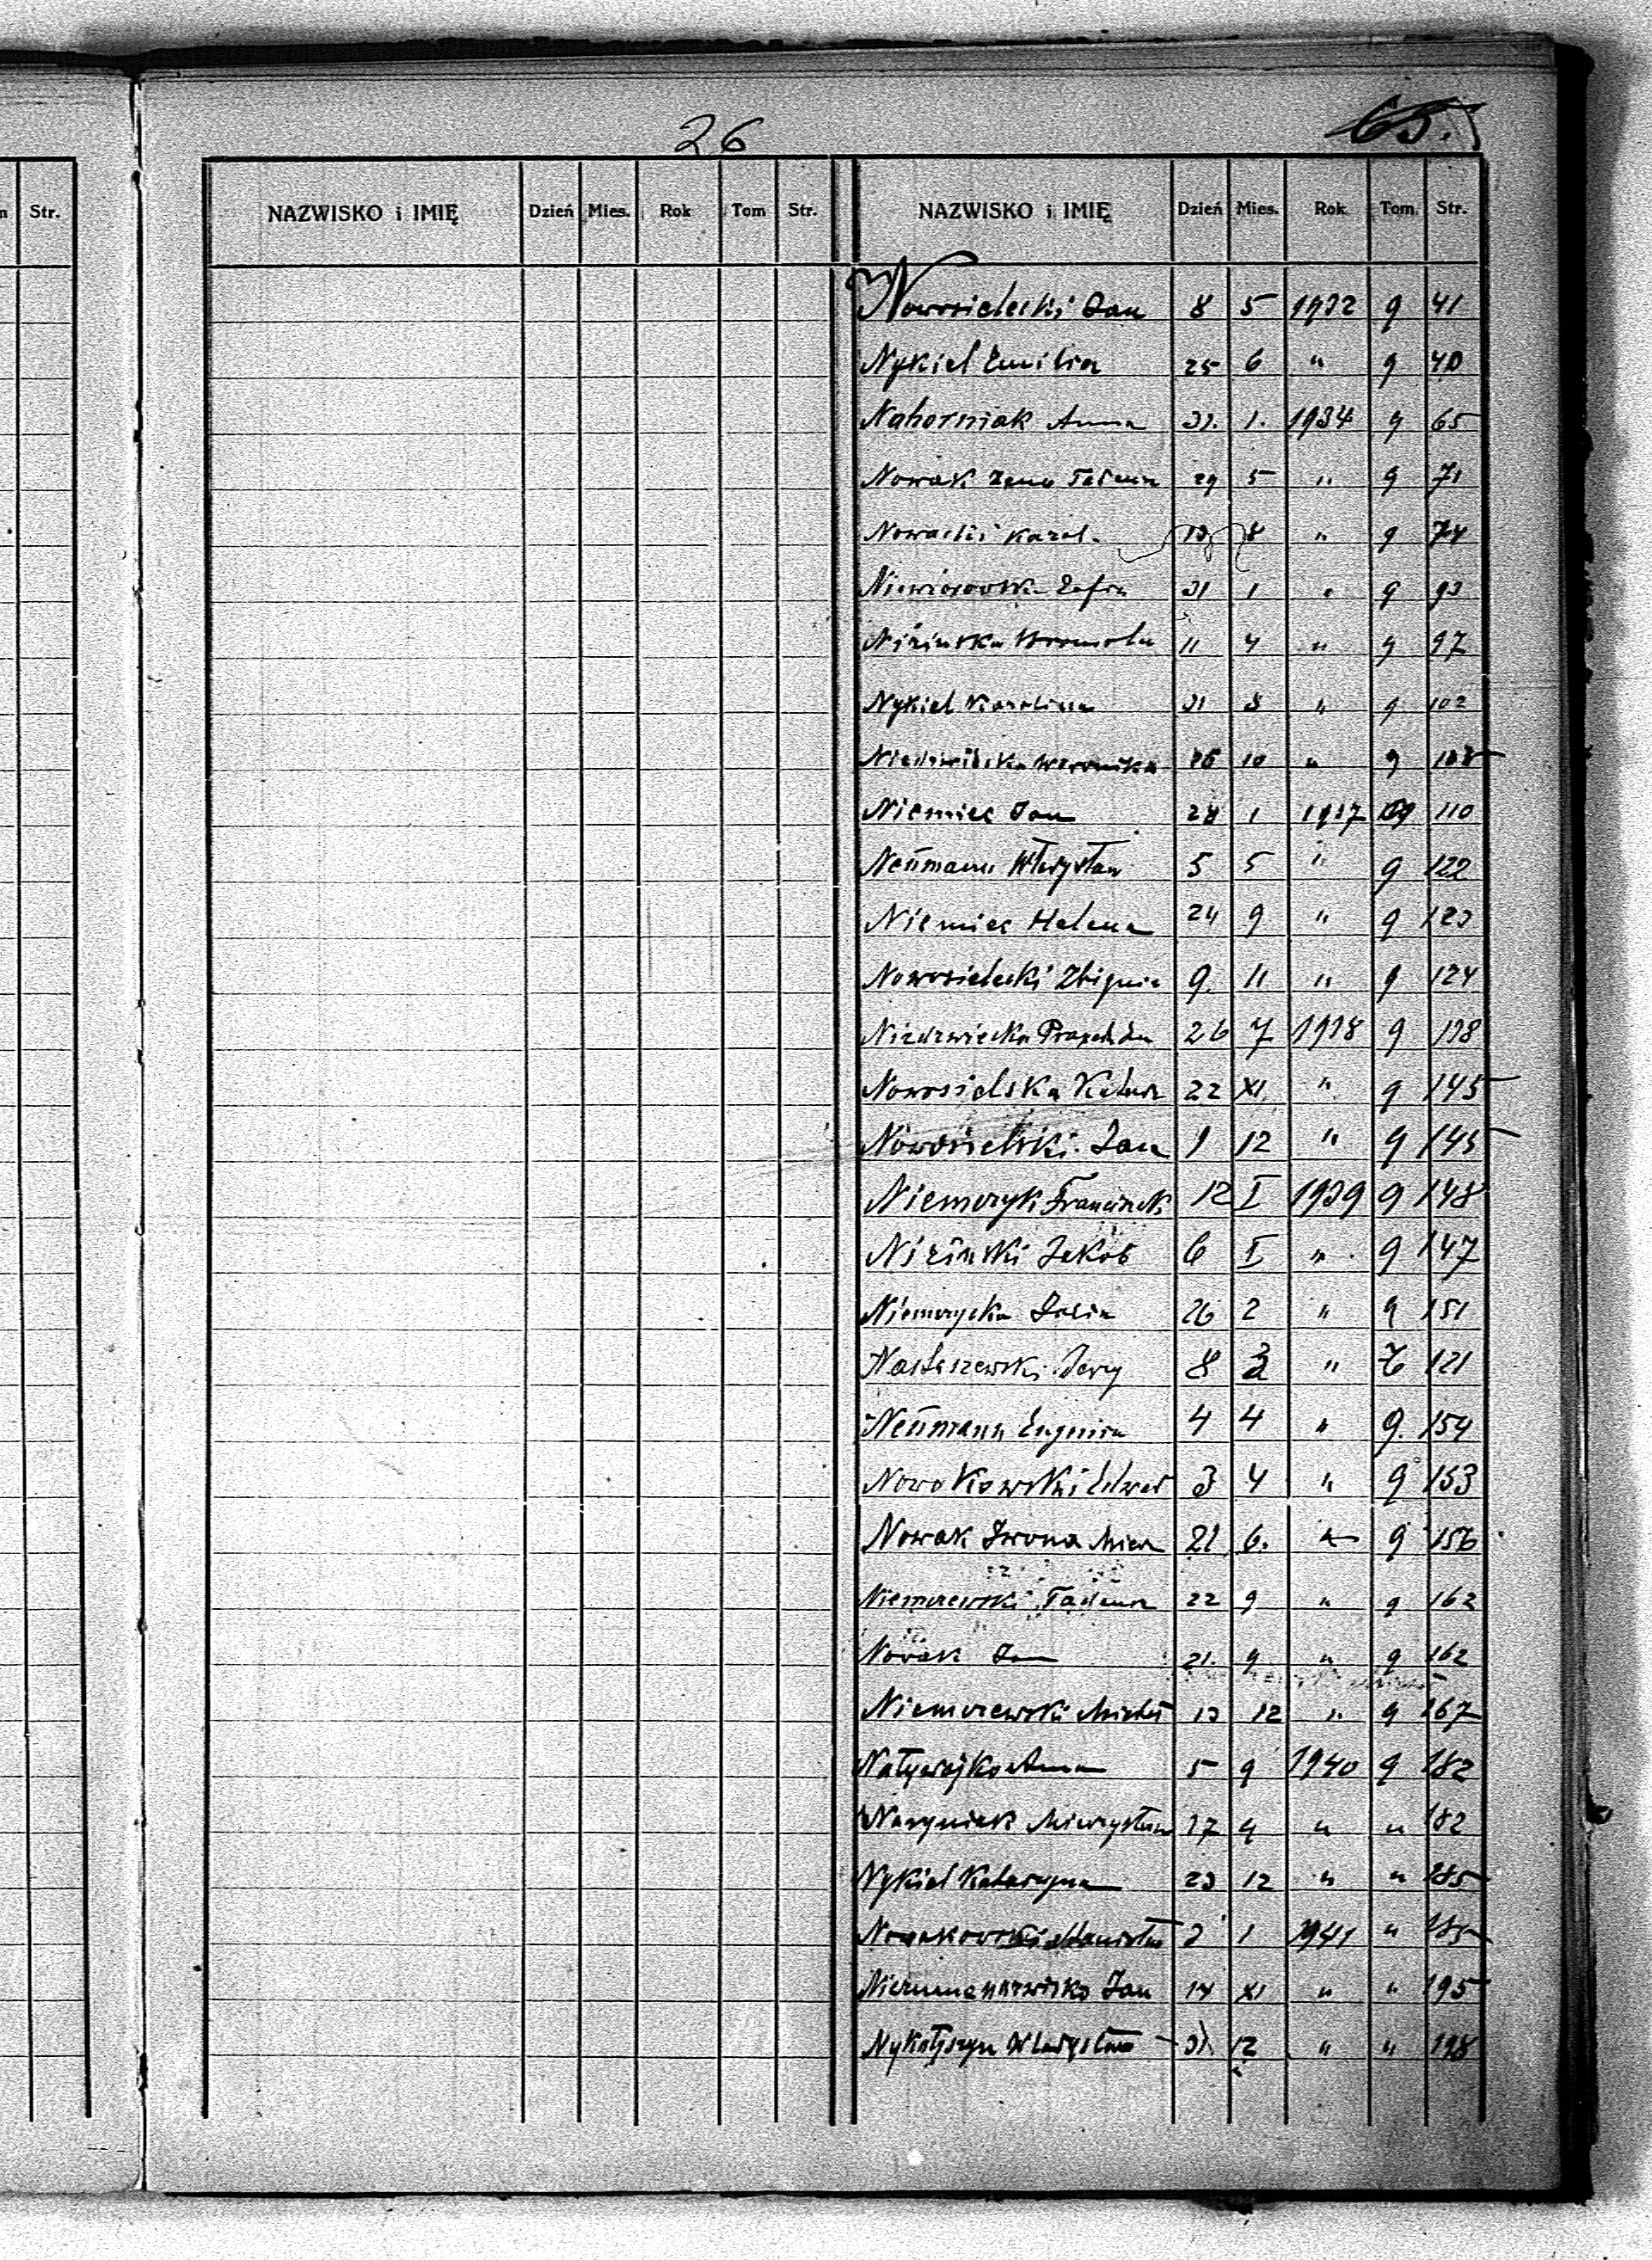 26
65.
Str.
NAZWISKO i IMIĘ Dzień Mies. Rok Tom Str. NAZWISKO i IMIĘ Dzień Mies. Rok Tom Str.
Nowosielecki Jan 8 5 1932 9 41
Nykiel Emilia 25 6 " 9 40
Nahorniak Anna 31. 1. 1934 9 65
Nowak 29 5 " 9 71
Nowacki Karol 13 8 " 9 74
Zofia 31 1 " 9 93
Niżińska 11 4 " 9 97
Nykiel Karolina 31 8 " 9 102
Weronika 26 10 " 9 108
Niemiec Jan 28 1 1937 9 110
Neumann Władysław 5 5 " 9 122
Niemiec Helena 24 9 " 9 123
Nowosielecki Zbigniew 9. 11 " 9 124
Niedzwiecka Prakseda 26 7 1938 9 138
Nowosielska 22 XI " 9 145
Nowosielski Jan 1 12 " 9 145
Niemczyk Franciszek 12 I 1939 9 148
Niziński Jakób 6 I " 9 147
Niemczycka 26 2 " 9 151
Nasteszewski Jerzy 8 3 " 7 121
Neumann Eugenia 4 4 " 9. 154
Nowokowski Edward 3 4 " 9 153
Nowak Iwona 21 6. " 9 156
Niemczewski Tadeusz 22 9 " 9 162
Nowak Jan 21. 9 " 9 162
Niemczewski 13 12 " 9 167
Natywajko Anna 5 9 1940 9 182
Mieczysław 17 9 " " 182
Nykiel Katarzyna 23 12 " " 185
Nowakowski Stanisław 3 1 1941 " 185
Nieznane nazwisko Jan 14 XI " " 195
Nykołyszyn Władysława 31. 12 " " 198